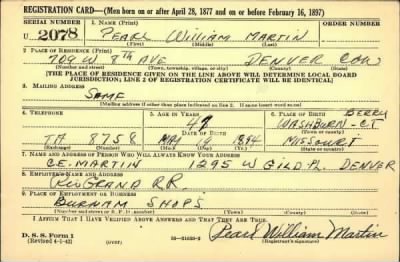 REGISTRATION CARD—(Men born on or after April 28, 1877 and on or before February 16, 1897)
SERIAL NUMBER 1. NAME (Print)
U 2078 PEARL WILLIAM MARTIN
(First) (Middle) (Last)
2. PLACE OF RESIDENCE (Print)
709 W 8TH AVE DENVER COLO
(Number and street) (Town, township, village, or city) (County) (State)
[THE PLACE OF RESIDENCE GIVEN ON THE LINE ABOVE WILL DETERMINE LOCAL BOARD
JURISDICTION; LINE 2 OF REGISTRATION CERTIFICATE WILL BE IDENTICAL]
3. MAILING ADDRESS
SAME
(Mailing address if other than place indicated on line 2. If same insert word same)
4. TELEPHONE 5. AGE IN YEARS 6. PLACE OF BIRTH
47 BERRY
DATE OF BIRTH WASHBURN - CT
(Town or county)
TA 8758 1894 MISSOURI
(Exchange) (Number) (Mo.) (Day) (Yr.) (State or country)
7. NAME AND ADDRESS OF PERSON WHO WILL ALWAYS KNOW YOUR ADDRESS
C.E. MARTIN 1295 W GILD PL. DENVER
8. EMPLOYER'S NAME AND ADDRESS
RIO GRAND R.R.
9. PLACE OF EMPLOYMENT OR BUSINESS
BURNAM SHOPS
(Number and street or R. F. D. number) (Town) (County) (State)
I AFFIRM THAT I HAVE VERIFIED ABOVE ANSWERS AND THAT THEY ARE TRUE.
D. S. S. Form 1
(Revised 4-1-42) (over) Pearl William Martin